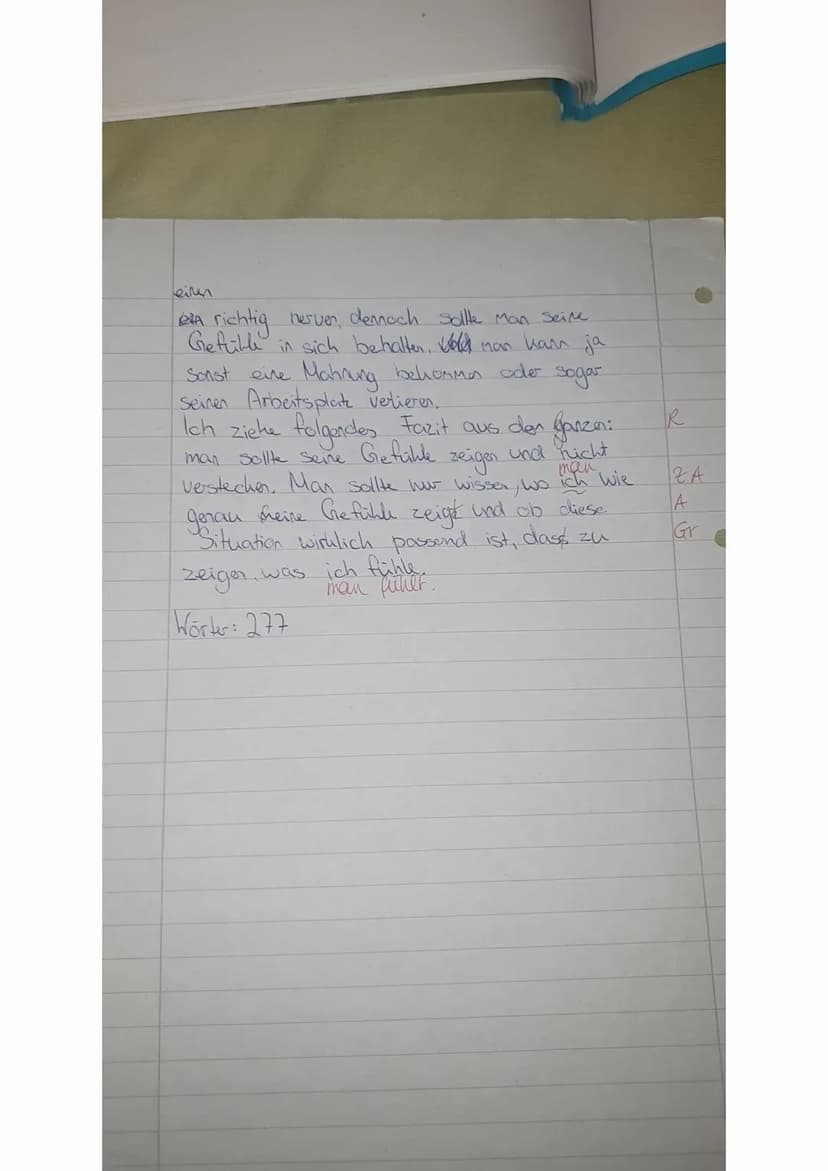 einen
ein richtig nerven, dennoch sollte man seine
Gefühle in sich behalten, man kann ja
sonst eine Mahnung bekommen oder sogar
seinen Arbeitsplatz verlieren.
Ich ziehe folgendes Fazit aus den ganzen: R
man sollte seine Gefühle zeigen und nicht
man
verstecken. Man sollte nur wissen, wo ich wie ZA
genau meine Gefühle zeigt und ob diese A
Situation wirklich passend ist, dass zu Gr
zeigen, was ich fühle.
man fühlt.
Wörter: 277